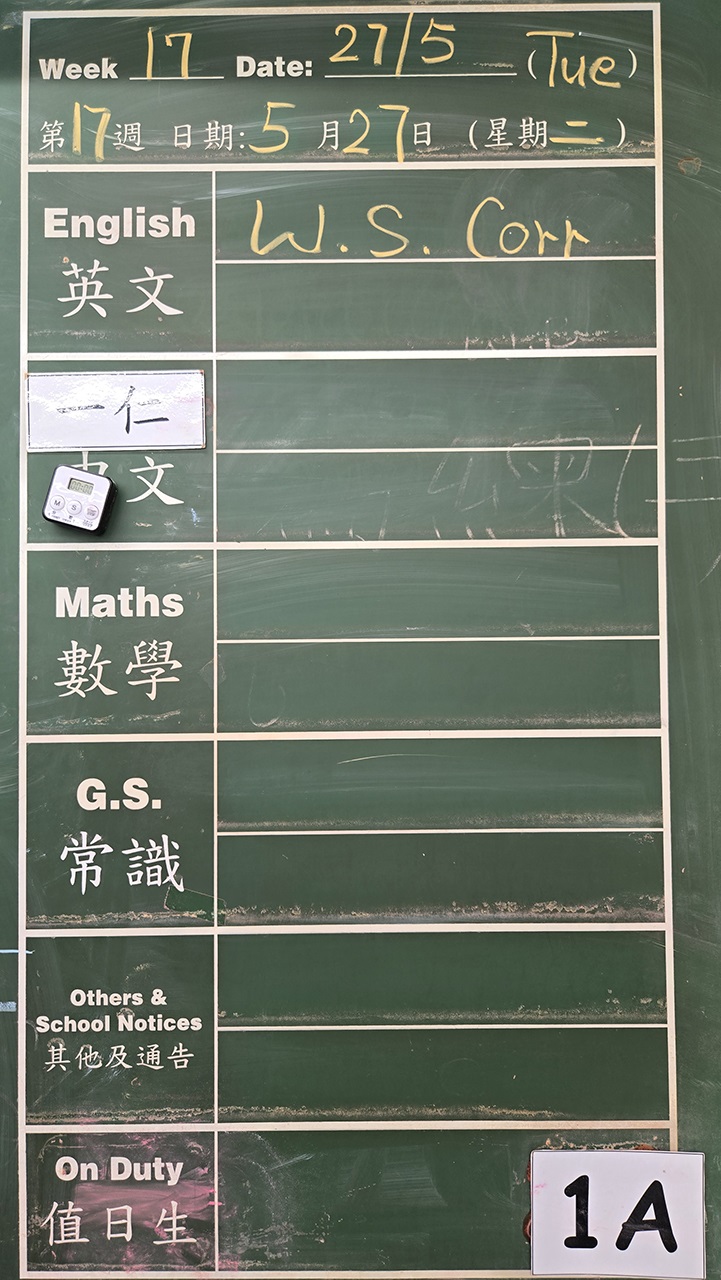 Week 17 Date: 27/5 (Tue)
第17週 日期:5月27日 (星期二)
English W.S. Corr
英文
一仁
文
00:00
M S
Maths
數學
G.S.
常識
Others &
School Notices
其他及通告
On Duty
值日生
1A